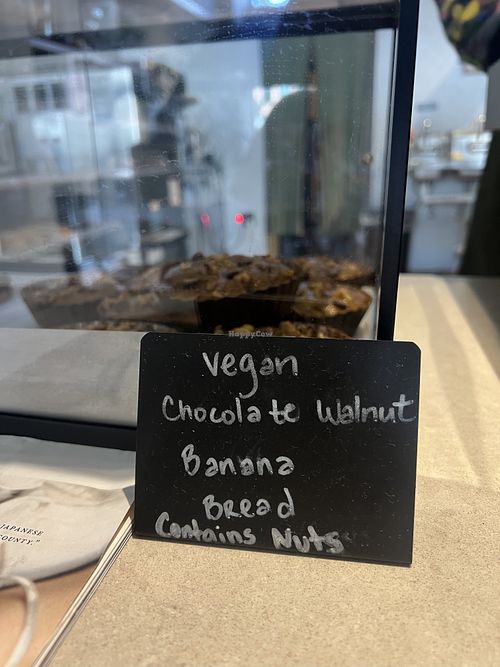 HappyCow
Vegan
Chocolate Walnut
Banana
Bread
Contains Nuts
JAPANESE
COUNTY."